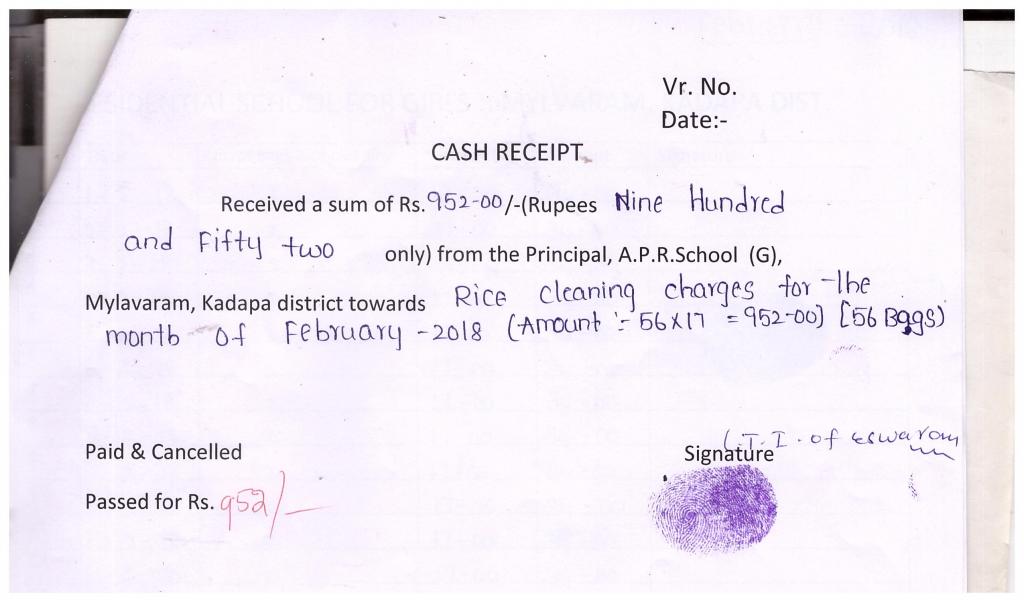 Vr. No.
Date:-
CASH RECEIPT
Received a sum of Rs.952-00/-(Rupees Nine Hundred
and Fifty two only) from the Principal, A.P.R.School (G),
Mylavaram, Kadapa district towards Rice cleaning charges for the
month of February -2018 (Amount :- 56x17 =952-00) [56 Bags)
Paid & Cancelled
L.T.I. of eswaram
Signature
Passed for Rs. 952/-